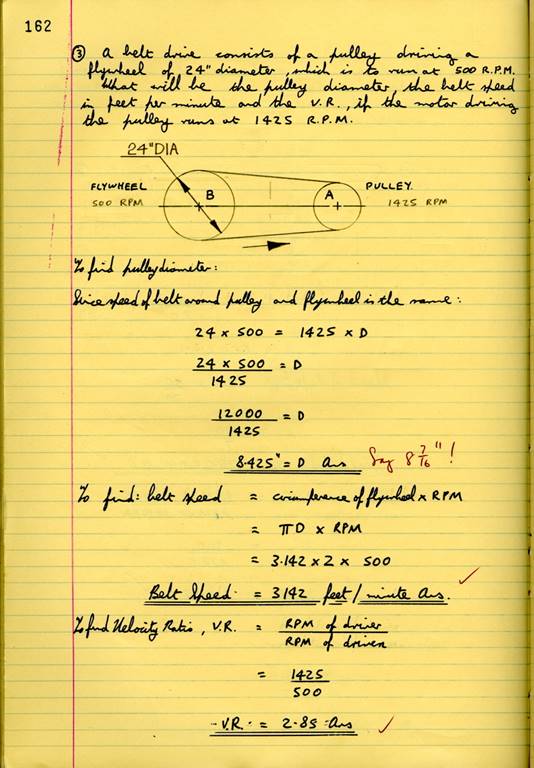 162
③ A belt drive consists of a pulley driving a
flywheel of 24" diameter, which is to run at 500 R.P.M.
What will be the pulley diameter, the belt speed
in feet per minute and the V.R., if the motor driving
the pulley runs at 1425 R.P.M.
24" DIA
FLYWHEEL B A PULLEY.
500 RPM 1425 RPM
To find pulley diameter:
Since speed of belt around pulley and flywheel is the same:
24 × 500 = 1425 × D
24 × 500 = D
1425
12000 = D
1425
8.425" = D Ans Say 8 7/16"!
To find: belt speed = circumference of flywheel × RPM
= πD × RPM
= 3.142 × 2 × 500
Belt Speed = 3142 feet/minute Ans. ✓
To find Velocity Ratio, V.R. = RPM of driver
RPM of driven
= 1425
500
V.R. = 2.85 Ans ✓